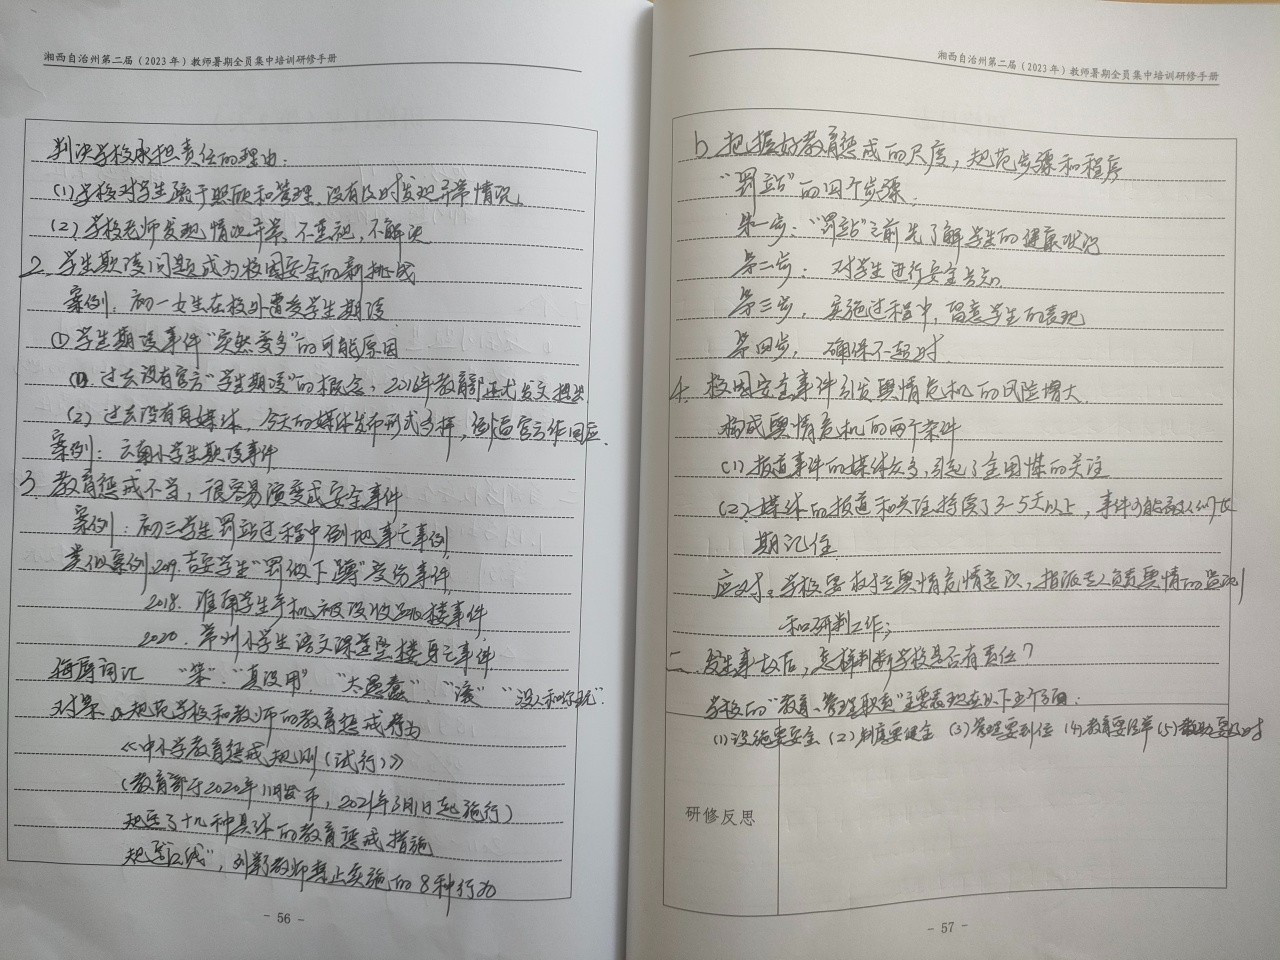 湘西自治州第二届（2023年）教师暑期全员集中培训研修手册
判决学校承担责任的理由：
(1)学校对学生疏于照顾和管理，没有及时发现异常情况
(2)学校老师发现情况异常，不重视，不解决
2. 学生欺凌问题成为校园安全的新挑战
案例：初一女生在校外遭受学生欺凌
①学生欺凌事件“突然变多”的可能原因
(1). 过去没有官方“学生欺凌”的概念，2016年教育部正式发文提出
(2) 过去没有自媒体，今天的媒体发布形式多样，倒逼官方作回应.
案例：云南小学生欺凌事件
3. 教育惩戒不当，很容易演变成安全事件
案例：初三学生罚站过程中倒地事亡事例
类似案例 2019. 吉安学生“罚做下蹲”受伤事件
2018. 淮南学生手机被没收跳楼事件
2020. 常州小学生语文课堂坠楼身亡事件
侮辱词汇 “笨”、“真没用”、“太愚蠢”、“滚” “没人和你玩”.
对策 a. 规范学校和教师的教育惩戒行为
《中小学教育惩戒规则（试行）》
（教育部于2020年11月发布，2021年3月1日起施行）
规定了十几种具体的教育惩戒措施
规定“红线”，列举教师禁止实施的8种行为
- 56 -
湘西自治州第二届（2023年）教师暑期全员集中培训研修手册
b. 把握好教育惩戒的尺度，规范步骤和程序
“罚站”的四个步骤：
第一步：“罚站”之前先了解学生的健康状况
第二步：对学生进行安全告知
第三步，实施过程中，留意学生的表现
第四步，确保不超时
4. 校园安全事件引发舆情危机的风险增大
构成舆情危机的两个条件
(1) 报道事件的媒体众多，引起了全国性的关注
(2). 媒体的报道和关注持续了3-5天以上，事件可能被人们长
期记住
应对：学校要树立舆情危情意识，指派专人负责舆情的监测
和研判工作；
二、发生事故后，怎样判断学校是否有责任？
学校的“教育、管理职责”主要表现在以下五个方面：
(1)设施要安全 (2)制度要健全 (3)管理要到位 (4)教育要经常 (5)救助要及时
研修反思
- 57 -